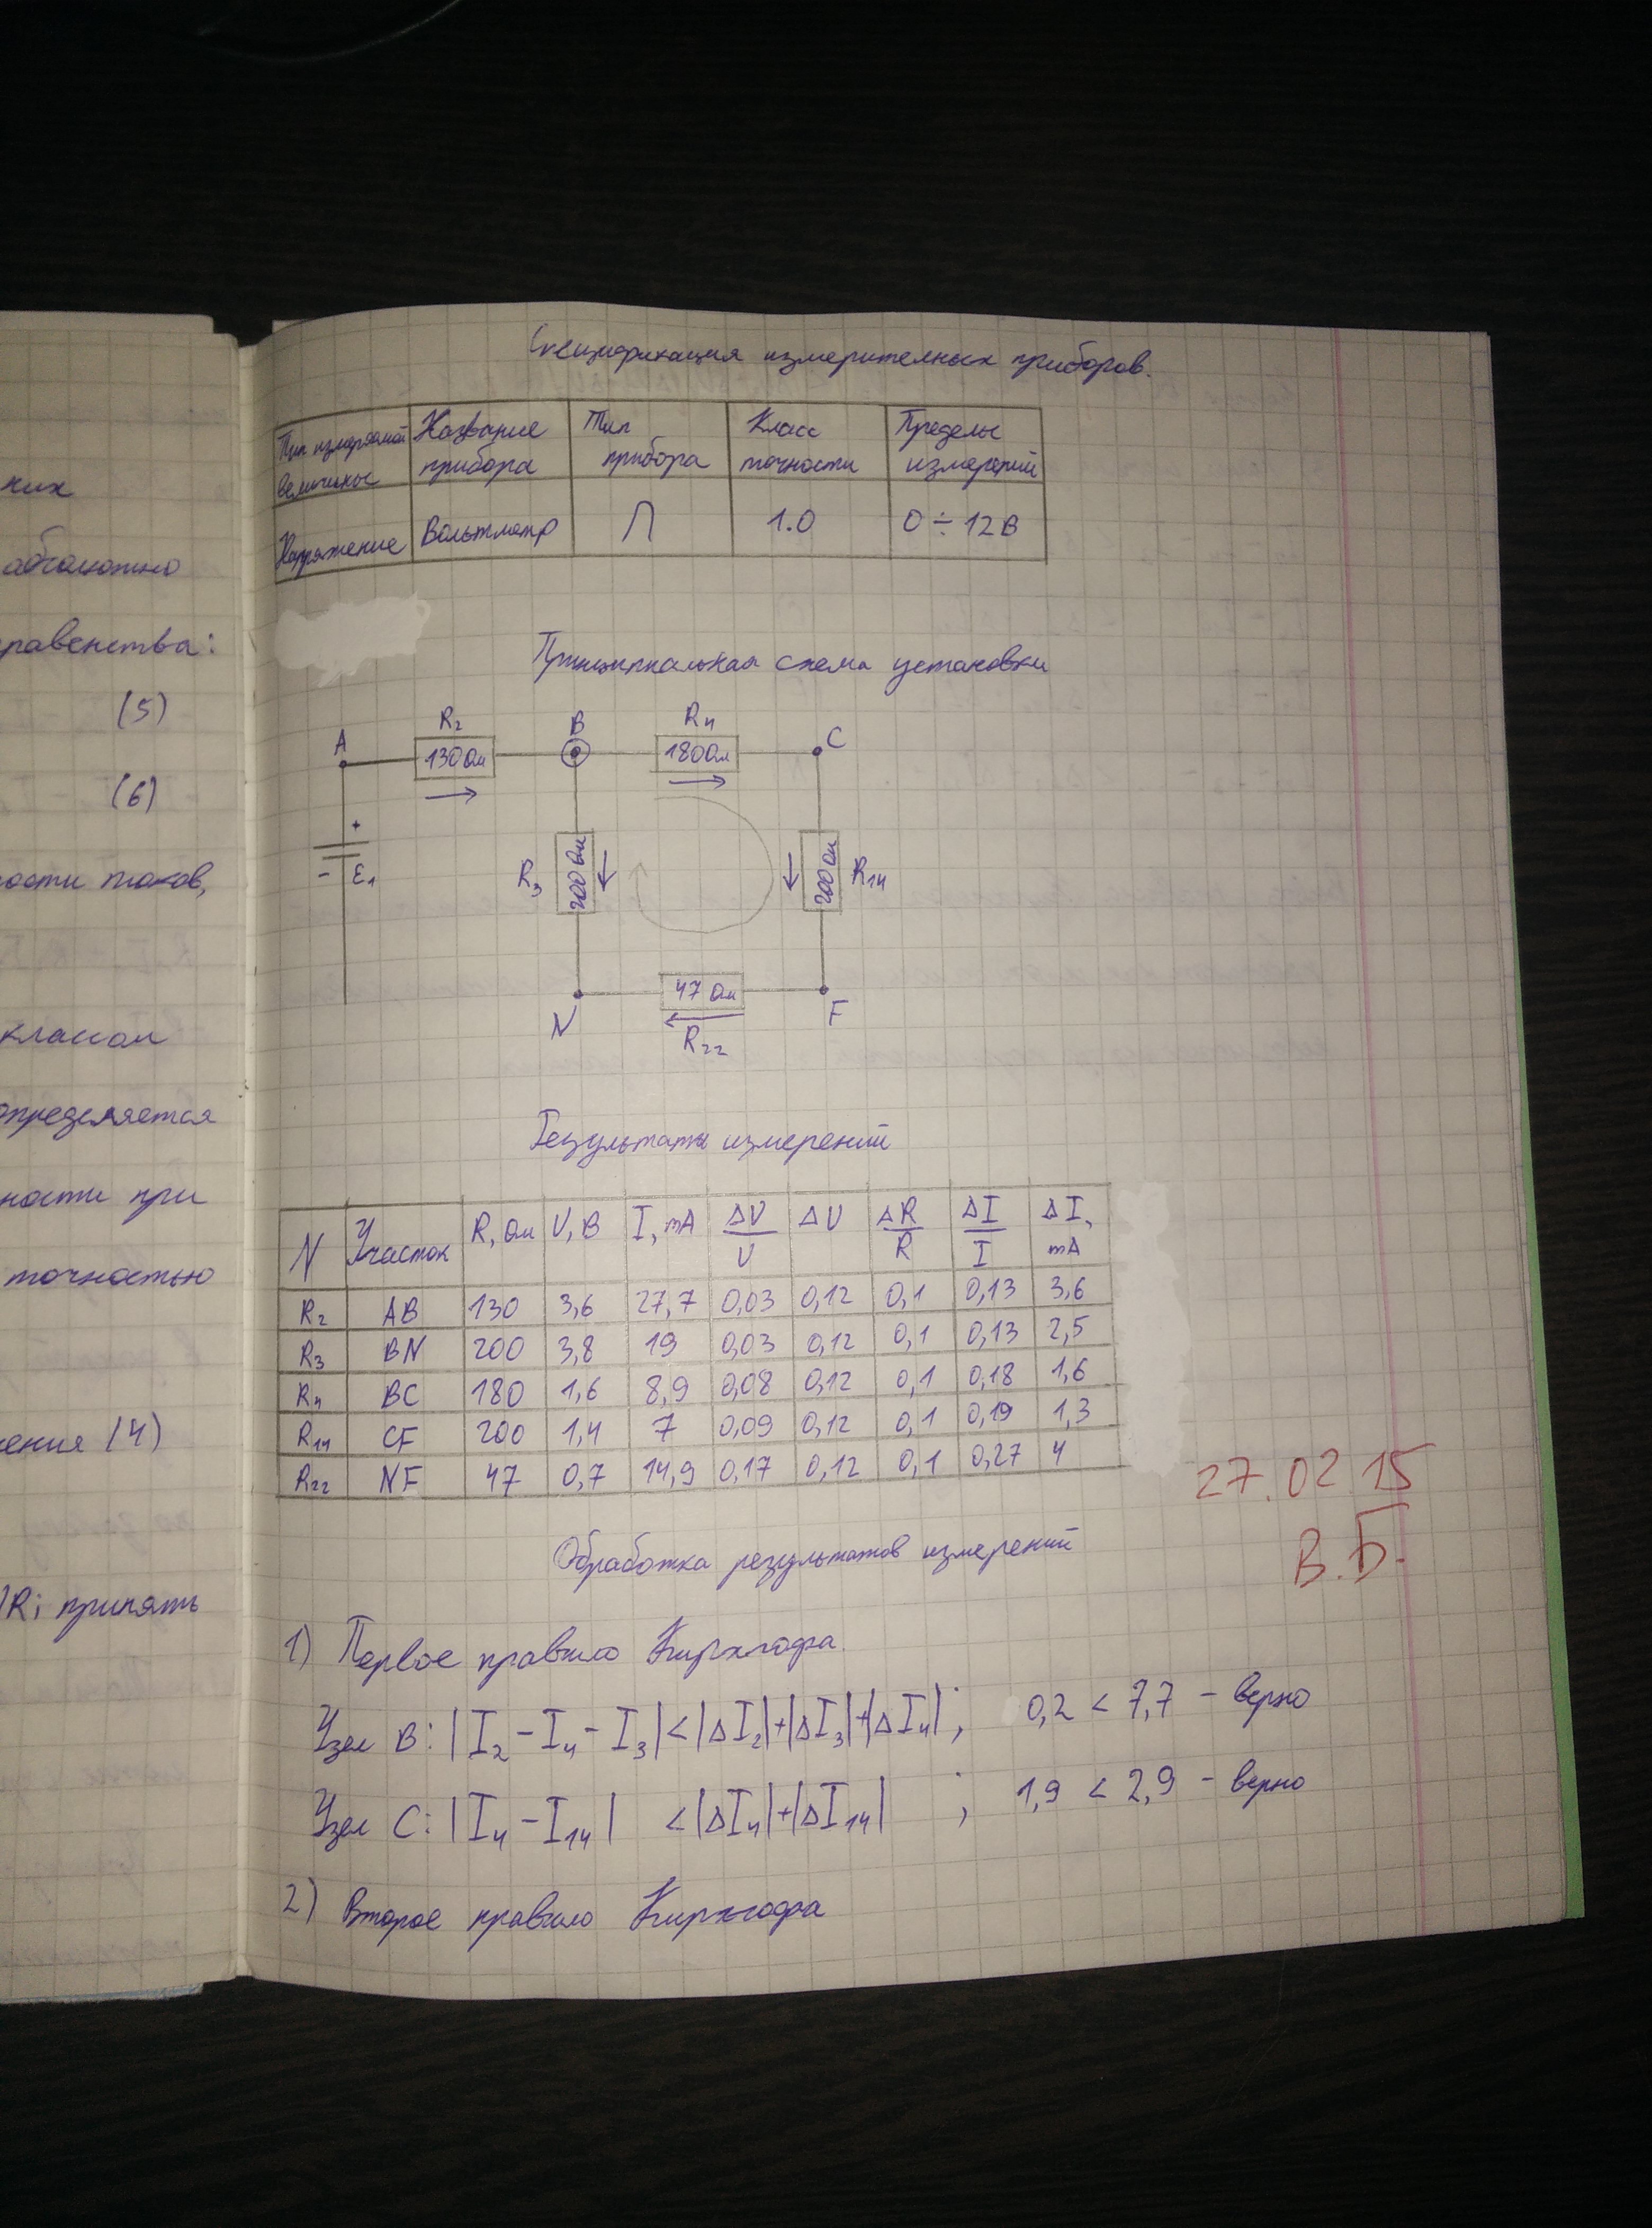 них
абсолютно
равенства:
(5)
(6)
ости токов,
классом
определяется
ности при
точностью
ения (4)
Ri принять
Спецификация измерителных приборов.
Тип измеряемой величины Название прибора Тип прибора Класс точности Пределы измерений
Напряжение Вольтметр П 1.0 0 ÷ 12 В
Принципиальная схема установки
A R2 B R4 C
130 Ом 180 Ом
+
- Ɛ1 R3 200 Ом 200 Ом R14
47 Ом
N R22 F
Результаты измерений
N Участок R, Ом U, В I, mA ΔU/U ΔU ΔR/R ΔI/I ΔI, mA
R2 AB 130 3,6 27,7 0,03 0,12 0,1 0,13 3,6
R3 BN 200 3,8 19 0,03 0,12 0,1 0,13 2,5
R4 BC 180 1,6 8,9 0,08 0,12 0,1 0,18 1,6
R14 CF 200 1,4 7 0,09 0,12 0,1 0,19 1,3
R22 NF 47 0,7 14,9 0,17 0,12 0,1 0,27 4
27.02.15
В.Б.
Обработка результатов измерений
1) Первое правило Кирхгофа.
Узел B: |I2 - I4 - I3| < |ΔI2|+|ΔI3|+|ΔI4|; 0,2 < 7,7 - верно
Узел C: |I4 - I14| < |ΔI4|+|ΔI14| ; 1,9 < 2,9 - верно
2) Второе правило Кирхгофа